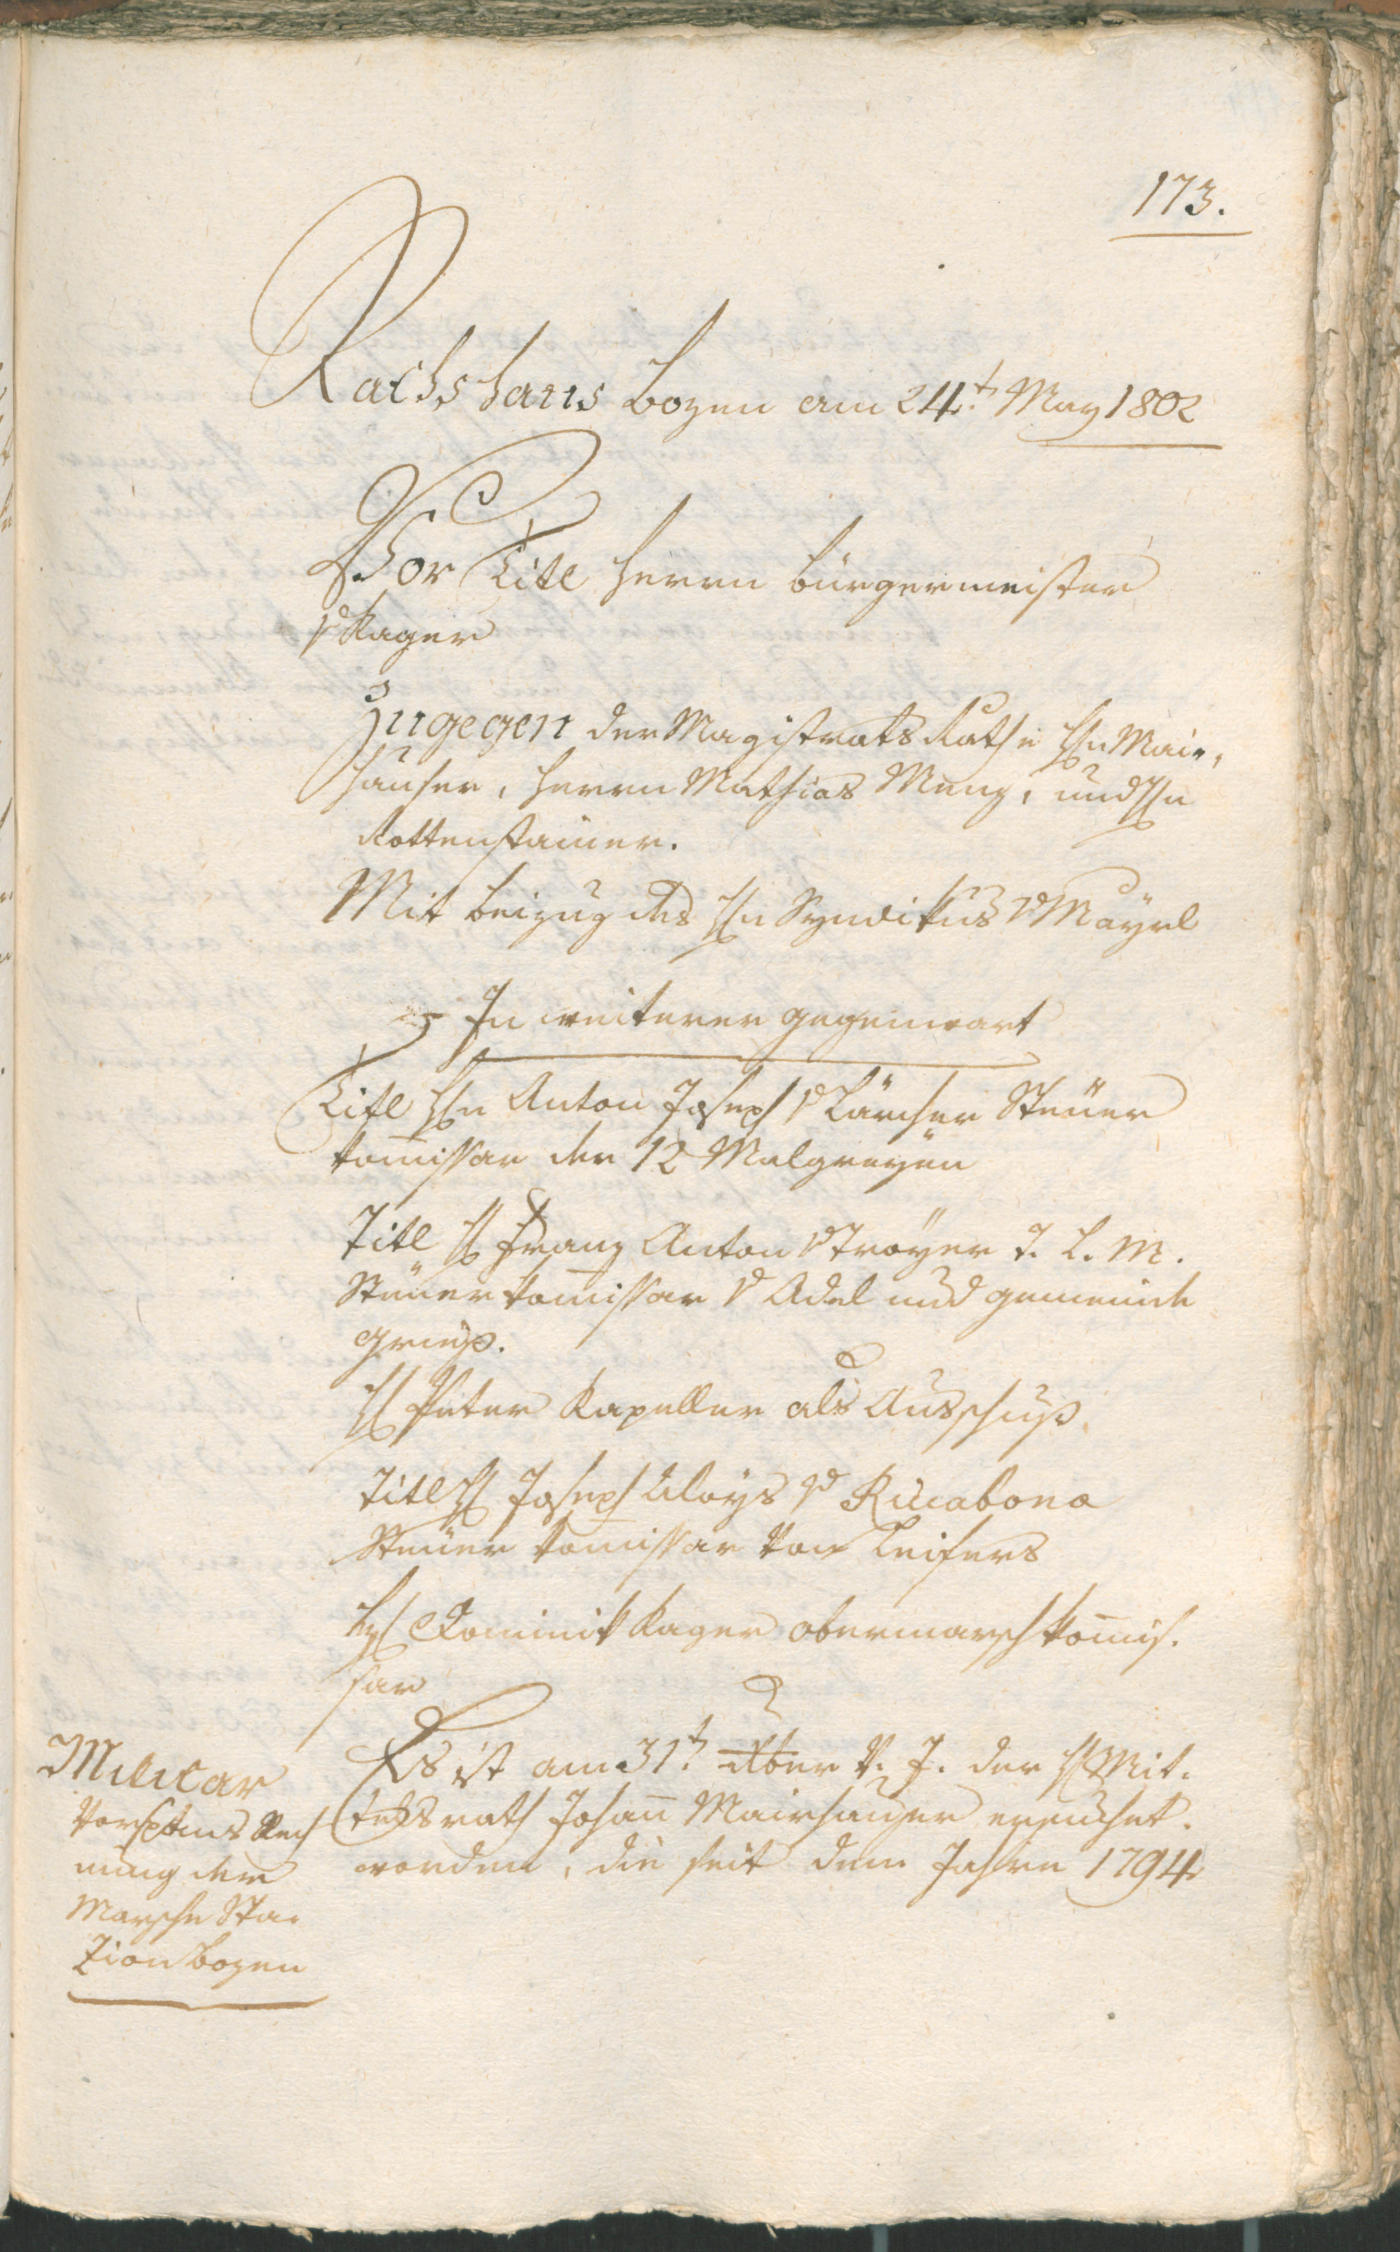 173.
Rathshaus Bozen am 24.t May 1802
Vor Titl Herrn Bürgermeister
v Kager
Zugegen der Magistrats Räthe Hn Mair,
hauser, Herrn Mathias Menz, und Hn
Rottensteiner.
Mit Beizug des Hn Syndikus v Mayrl
In weiterer Gegenwart
Titl Hn Anton Joseph v Lärcher Steuer
kom̅issar der 12 Malgreyen
Titl H Franz Anton v Troyer T. L. M.
Steuer kom̅issar v Adel und Gemeinde
Grieß.
H Peter Kapeller als Ausschuß
Titl H Joseph Aloys v Riccabona
Steuer kom̅issar von Leifers
H Dominik Kager Obermarsch kom̅is.
sar
Militar
Vorspans Rech
nung der
Marsche Sta.
zion Bozen
Es ist am 31.t Xber v. J. der H Mit.
telsrath Johan̅ Mairhauser ersuchet.
worden, die seit dem Jahre 1794